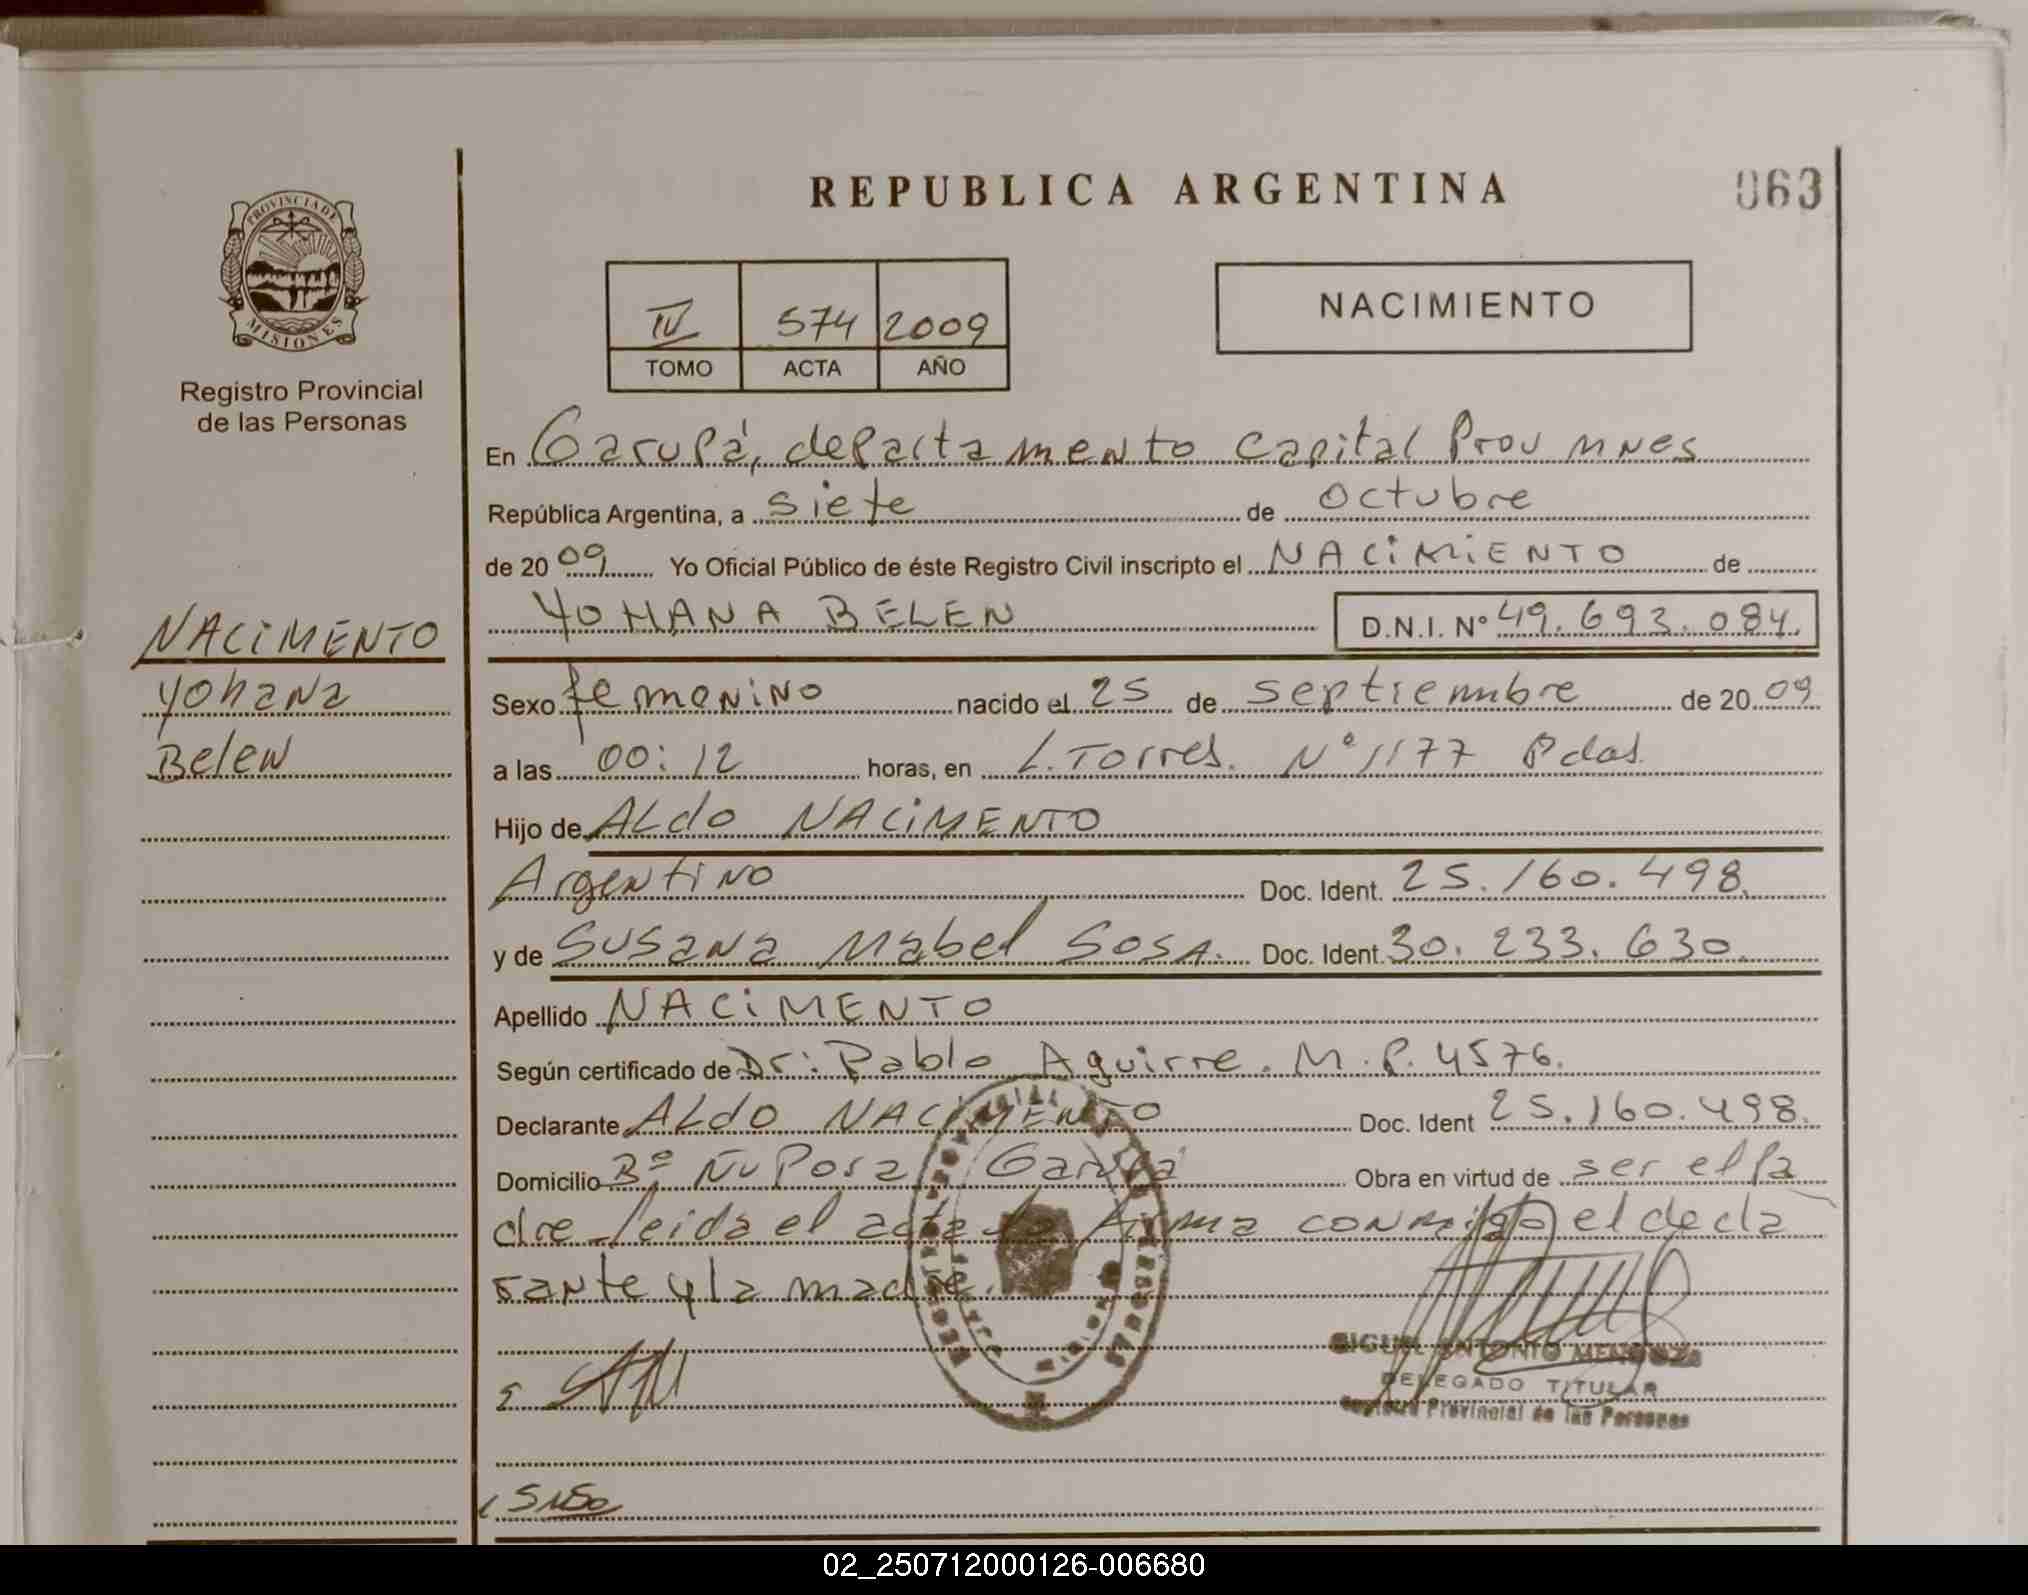 REPUBLICA ARGENTINA
063
PROVINCIA DE
MISIONES
Registro Provincial
de las Personas
IV 574 2009
TOMO ACTA AÑO
NACIMIENTO
En Garupá, departamento Capital Prov Mnes
República Argentina, a siete de octubre
de 2009 Yo Oficial Público de éste Registro Civil inscripto el NACIMIENTO de
YOHANA BELEN D.N.I. Nº 49.693.084.
NACIMENTO
Yohana
Belen
Sexo femenino nacido el 25 de septiembre de 2009
a las 00:12 horas, en L. Torres. Nº 1177 Pdas.
Hijo de ALdo NACIMENTO
Argentino Doc. Ident. 25.160.498.
y de Susana Mabel Sosa. Doc. Ident. 30.233.630.
Apellido NACIMENTO
Según certificado de Dr: Pablo Aguirre. M.P. 4576.
Declarante ALdO NACIMENTO Doc. Ident 25.160.498.
Domicilio Bº Ñu Pora Garupá Obra en virtud de ser el pa
dre leida el acta la firma conmigo el decla
rante y la madre.
MIGUEL ANTONIO MENDOZA
DELEGADO TITULAR
Registro Provincial de las Personas
02_250712000126-006680